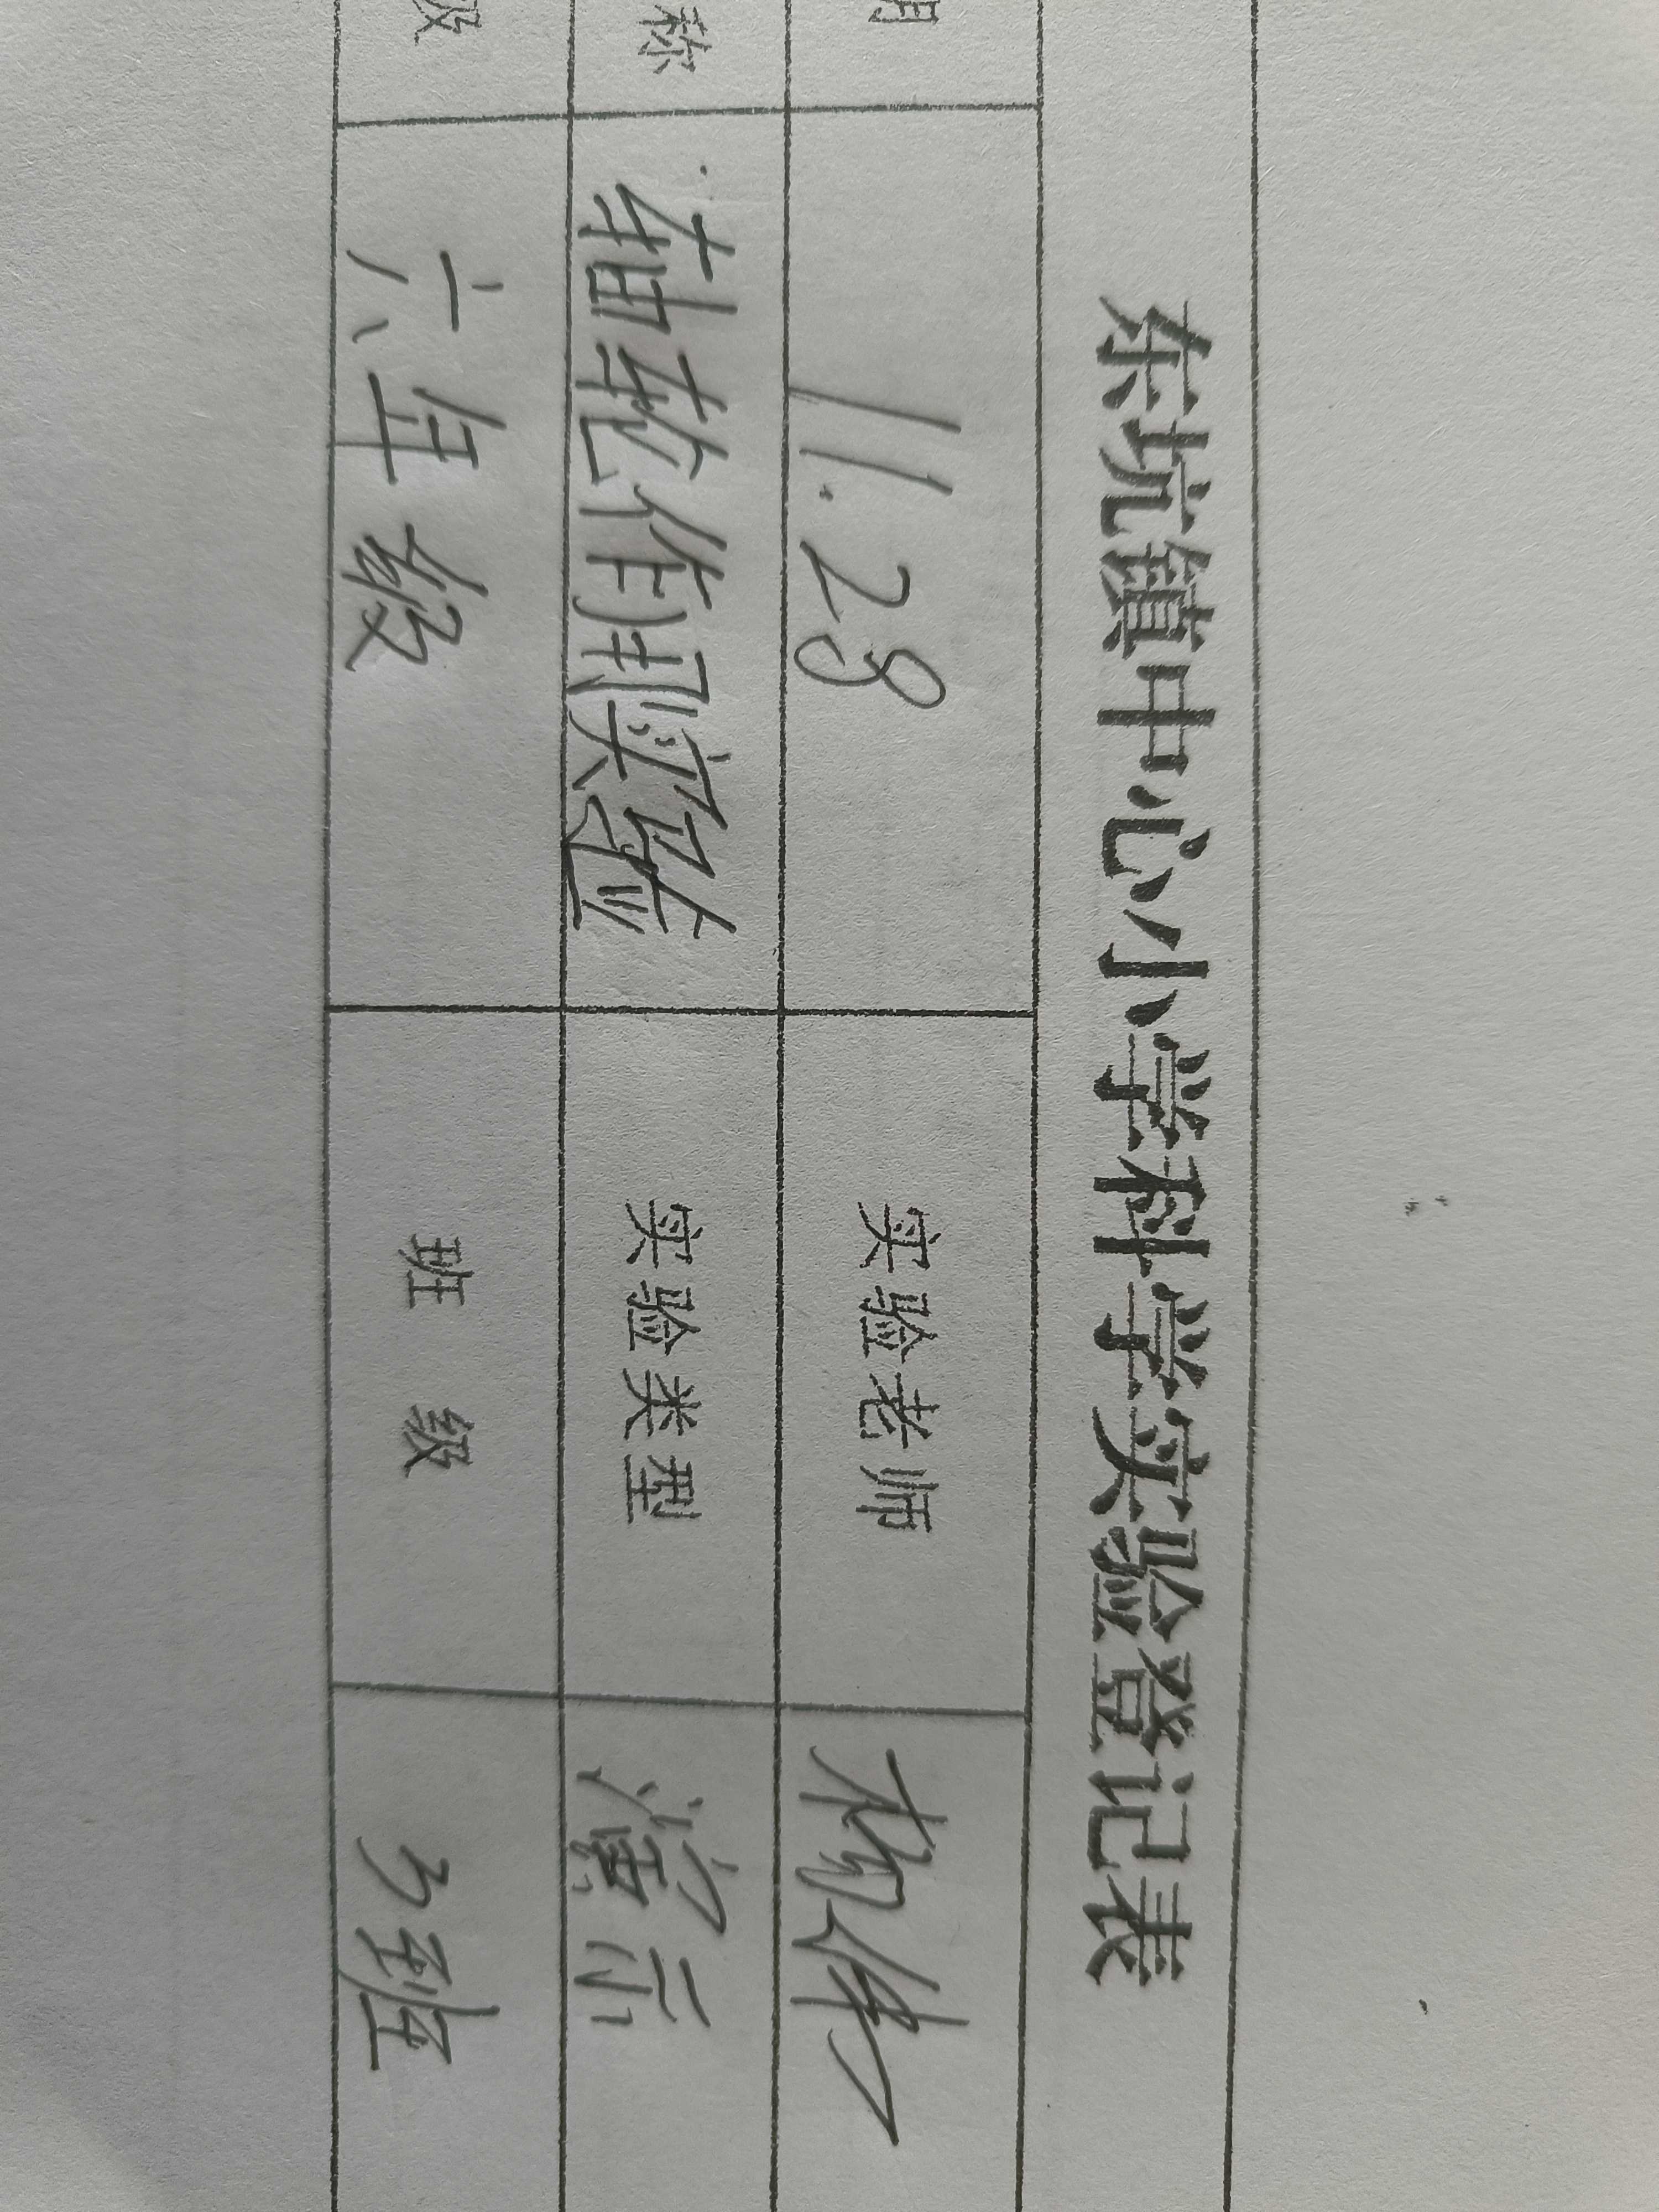 东坑镇中心小学科学实验登记表
期 11.28 实验老师
称 轴轮作用实验 实验类型 演示
级 六年级 班级 3班